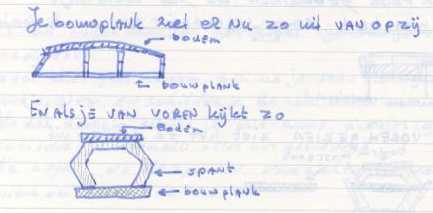 Je bouwplank ziet er nu zo uit VAN OPZIJ
bodem
bouwplank
En als je VAN VOREN kijkt zo
Bodem
SPANT
bouwplank